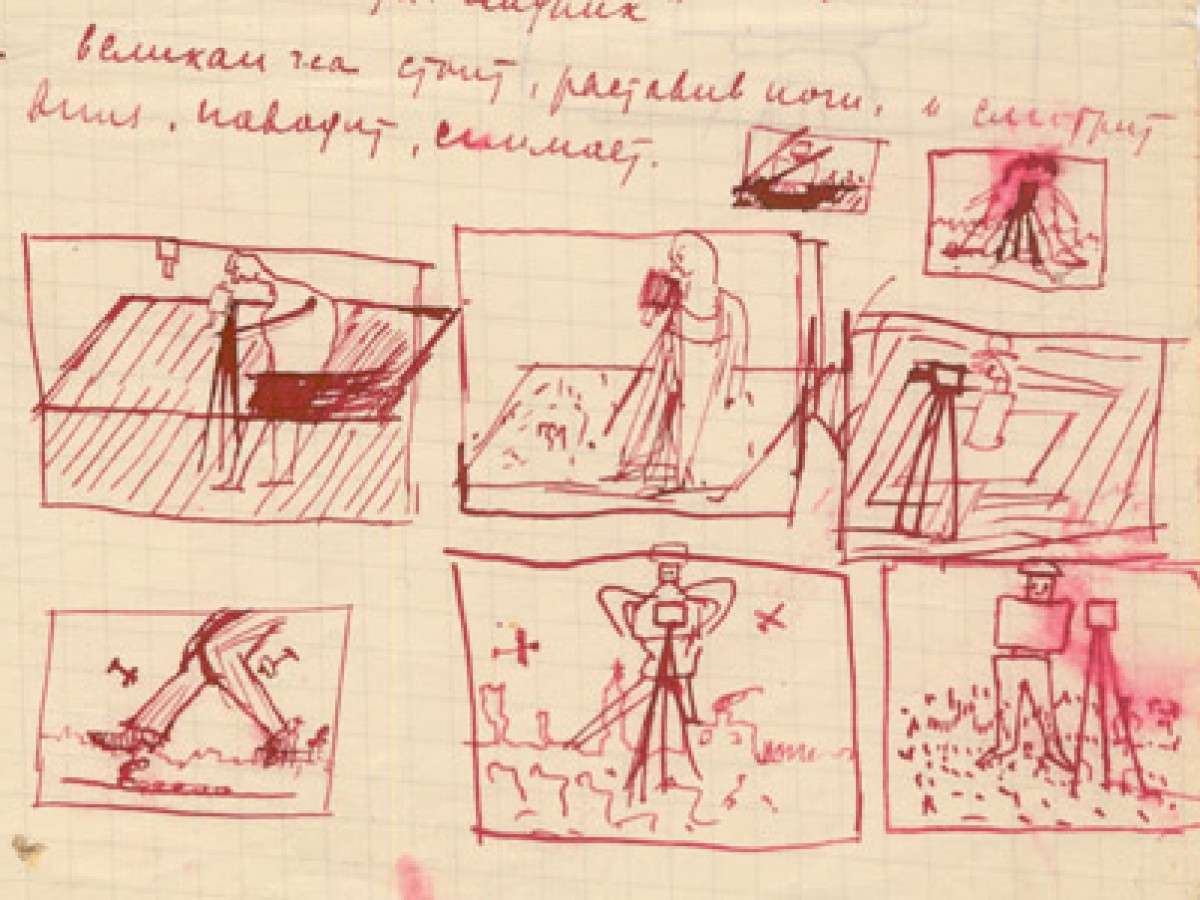 великан стоит, раставив ноги, и смотрит
вниз, наводит, снимает.